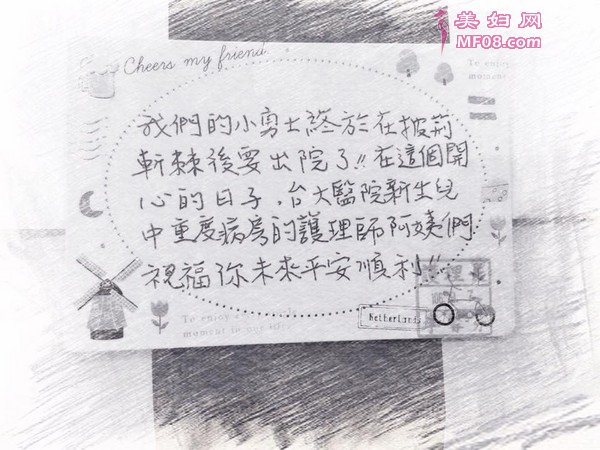 美妇网
MF08.com
Cheers my friend.
To enjoy
moment
我們的小勇士終於在披荊
斬棘後要出院了!!在這個開
心的日子,台大醫院新生兒
中重度病房的護理師阿姨們
祝福你未來平安順利!!
To enjoy
moment in our
Netherlands